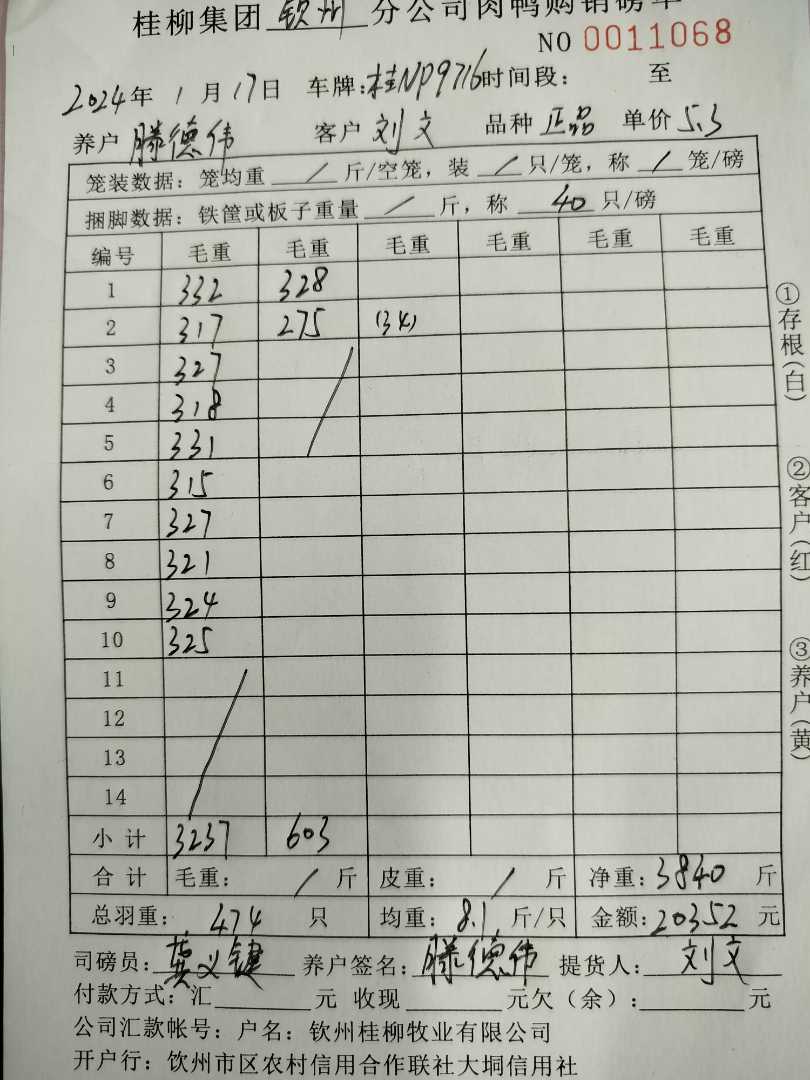 桂柳集团 钦州 分公司肉鸭购销磅单
NO 0011068
2024年 1月17日 车牌:桂NP9716时间段: 至
养户 滕德伟 客户 刘文 品种 正品 单价 5.3
笼装数据:笼均重 / 斤/空笼,装 / 只/笼,称 / 笼/磅
捆脚数据:铁筐或板子重量 / 斤,称 40 只/磅
编号 毛重 毛重 毛重 毛重 毛重 毛重
1 332 328
2 317 275 (34)
3 327
4 318
5 331
6 315
7 327
8 321
9 324
10 325
11
12
13
14
小计 3237 603
合计 毛重: / 斤 皮重: / 斤 净重:3840 斤
总羽重: 474 只 均重: 8.1 斤/只 金额:20352 元
司磅员:龚义键 养户签名:滕德伟 提货人: 刘文
付款方式:汇 元 收现 元欠(余): 元
公司汇款帐号:户名:钦州桂柳牧业有限公司
开户行:饮州市区农村信用合作联社大垌信用社
①存根(白)
②客户(红)
③养户(黄)